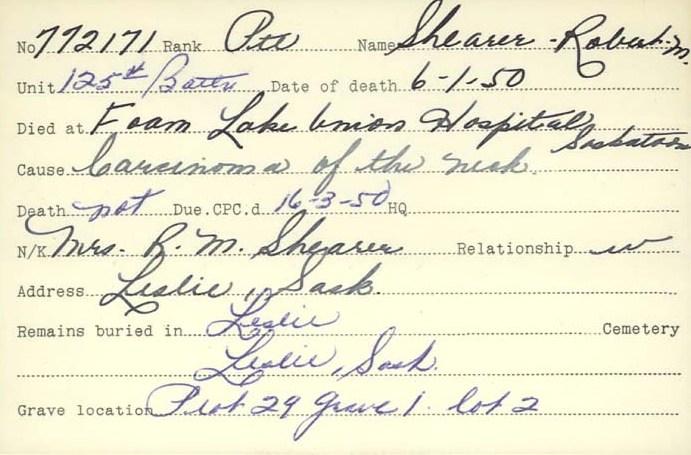 No 772171 Rank Pte Name Shearer - Robert M.
Unit 125th Battn Date of death 6-1-50
Died at Foam Lake Union Hospital Saskatoon
Cause Carcinoma of the neck.
Death not Due.CPC.d 16-3-50 HQ
N/K Mrs. R. M. Shearer Relationship w
Address Leslie, Sask.
Remains buried in Leslie Cemetery
Leslie, Sask.
Grave location Plot 29 Grave 1. lot 2